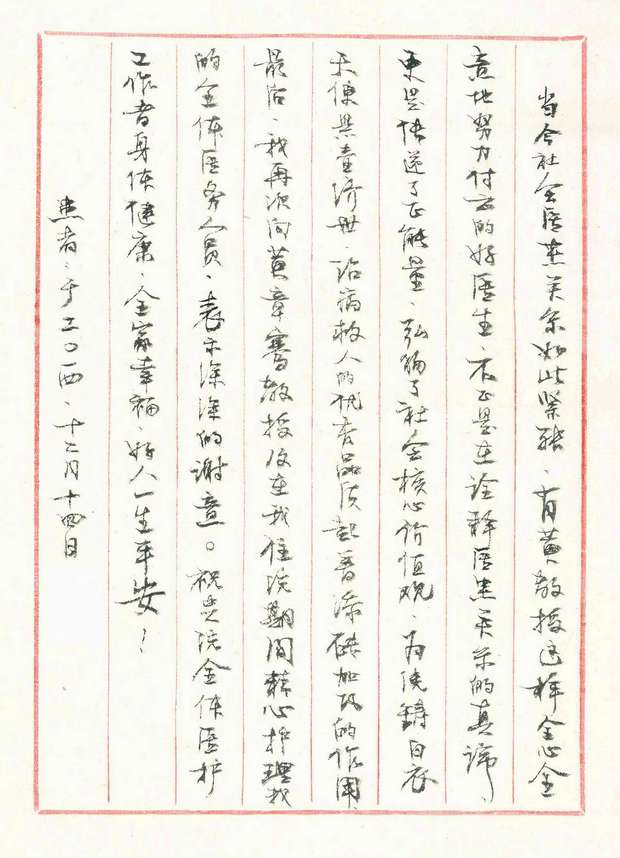 当今社会医患关系如此紧张、有黄教授这样全心全
意地努力付出的好医生、不正是在诠释医患关系的真谛、
更是传递了正能量、弘扬了社会核心价值观、为浇铸白衣
天使悬壶济世、治病救人的优秀品质起着添砖加瓦的作用
最后、我再次向黄章骞教授及在我住院期间精心护理我
的全体医务人员、表示深深的谢意。祝贵院全体医护
工作者身体健康、全家幸福、好人一生平安！
患者、于二〇一四、十二月十四日